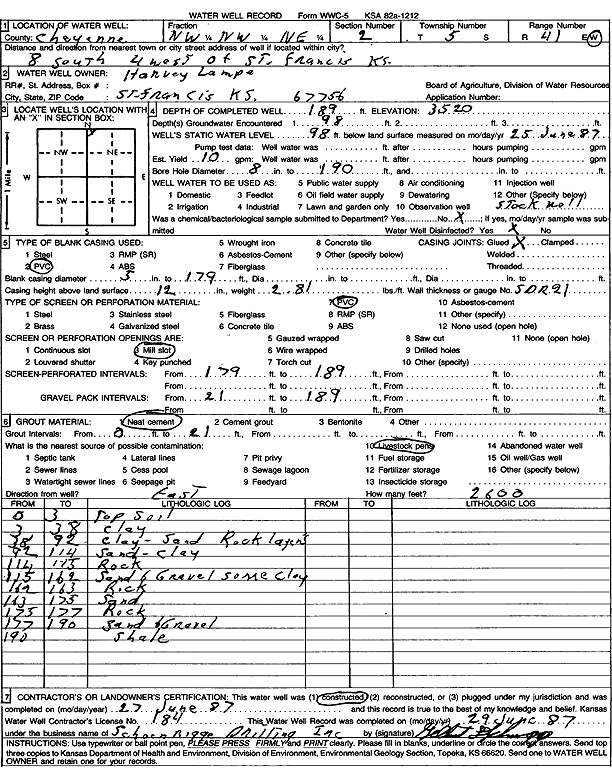 WATER WELL RECORD Form WWC-5 KSA 82a-1212
1 LOCATION OF WATER WELL: Fraction Section Number Township Number Range Number
County: Cheyenne NW ¼ NW ¼ NE ¼ 2 T 5 S R 41 E/W
Distance and direction from nearest town or city street address of well if located within city?
8 South 4 west of St. Francis KS.
2 WATER WELL OWNER: Harvey Lampe
RR#, St. Address, Box # : Board of Agriculture, Division of Water Resources
City, State, ZIP Code : St-Francis KS. 67756 Application Number:
3 LOCATE WELL'S LOCATION WITH AN "X" IN SECTION BOX:
N
NW NE
W E
SW SE
S
1 Mile
4 DEPTH OF COMPLETED WELL 189 ft. ELEVATION: 3520
Depth(s) Groundwater Encountered 1. 98 ft. 2. ft. 3. ft.
WELL'S STATIC WATER LEVEL 98 ft. below land surface measured on mo/day/yr 25 June 87
Pump test data: Well water was ft. after hours pumping gpm
Est. Yield 10 gpm: Well water was ft. after hours pumping gpm
Bore Hole Diameter 8 in. to 190 ft., and in. to ft.
WELL WATER TO BE USED AS: 5 Public water supply 8 Air conditioning 11 Injection well
1 Domestic 3 Feedlot 6 Oil field water supply 9 Dewatering 12 Other (Specify below)
2 Irrigation 4 Industrial 7 Lawn and garden only 10 Observation well Stock well
Was a chemical/bacteriological sample submitted to Department? Yes No X ; If yes, mo/day/yr sample was submitted
Water Well Disinfected? Yes X No
5 TYPE OF BLANK CASING USED: 5 Wrought iron 8 Concrete tile CASING JOINTS: Glued X Clamped
1 Steel 3 RMP (SR) 6 Asbestos-Cement 9 Other (specify below) Welded
2 PVC 4 ABS 7 Fiberglass Threaded
Blank casing diameter 5 in. to 179 ft., Dia in. to ft., Dia in. to ft.
Casing height above land surface 12 in., weight 2.81 lbs./ft. Wall thickness or gauge No. SDR21
TYPE OF SCREEN OR PERFORATION MATERIAL: 7 PVC 10 Asbestos-cement
1 Steel 3 Stainless steel 5 Fiberglass 8 RMP (SR) 11 Other (specify)
2 Brass 4 Galvanized steel 6 Concrete tile 9 ABS 12 None used (open hole)
SCREEN OR PERFORATION OPENINGS ARE: 5 Gauzed wrapped 8 Saw cut 11 None (open hole)
1 Continuous slot 3 Mill slot 6 Wire wrapped 9 Drilled holes
2 Louvered shutter 4 Key punched 7 Torch cut 10 Other (specify)
SCREEN-PERFORATED INTERVALS: From 179 ft. to 189 ft., From ft. to ft.
From ft. to ft., From ft. to ft.
GRAVEL PACK INTERVALS: From 21 ft. to 189 ft., From ft. to ft.
From ft. to ft., From ft. to ft.
6 GROUT MATERIAL: 1 Neat cement 2 Cement grout 3 Bentonite 4 Other
Grout Intervals: From 0 ft. to 21 ft., From ft. to ft., From ft. to ft.
What is the nearest source of possible contamination: 10 Livestock pens 14 Abandoned water well
1 Septic tank 4 Lateral lines 7 Pit privy 11 Fuel storage 15 Oil well/Gas well
2 Sewer lines 5 Cess pool 8 Sewage lagoon 12 Fertilizer storage 16 Other (specify below)
3 Watertight sewer lines 6 Seepage pit 9 Feedyard 13 Insecticide storage
Direction from well? East How many feet? 2600
FROM TO LITHOLOGIC LOG FROM TO LITHOLOGIC LOG
0 3 Top Soil
3 38 Clay
38 92 Clay-Sand Rock layers
92 114 Sand-Clay
114 115 Rock
115 162 Sand & Gravel some Clay
162 163 Rock
163 175 Sand
175 177 Rock
177 190 Sand & Gravel
190 Shale
7 CONTRACTOR'S OR LANDOWNER'S CERTIFICATION: This water well was (1) constructed, (2) reconstructed, or (3) plugged under my jurisdiction and was
completed on (mo/day/year) 27 June 87 and this record is true to the best of my knowledge and belief. Kansas
Water Well Contractor's License No. 184 This Water Well Record was completed on (mo/day/yr) 29 June 87
under the business name of Drilling Inc by (signature)
INSTRUCTIONS: Use typewriter or ball point pen, PLEASE PRESS FIRMLY and PRINT clearly. Please fill in blanks, underline or circle the correct answers. Send top
three copies to Kansas Department of Health and Environment, Division of Environment, Environmental Geology Section, Topeka, KS 66620. Send one to WATER WELL
OWNER and retain one for your records.